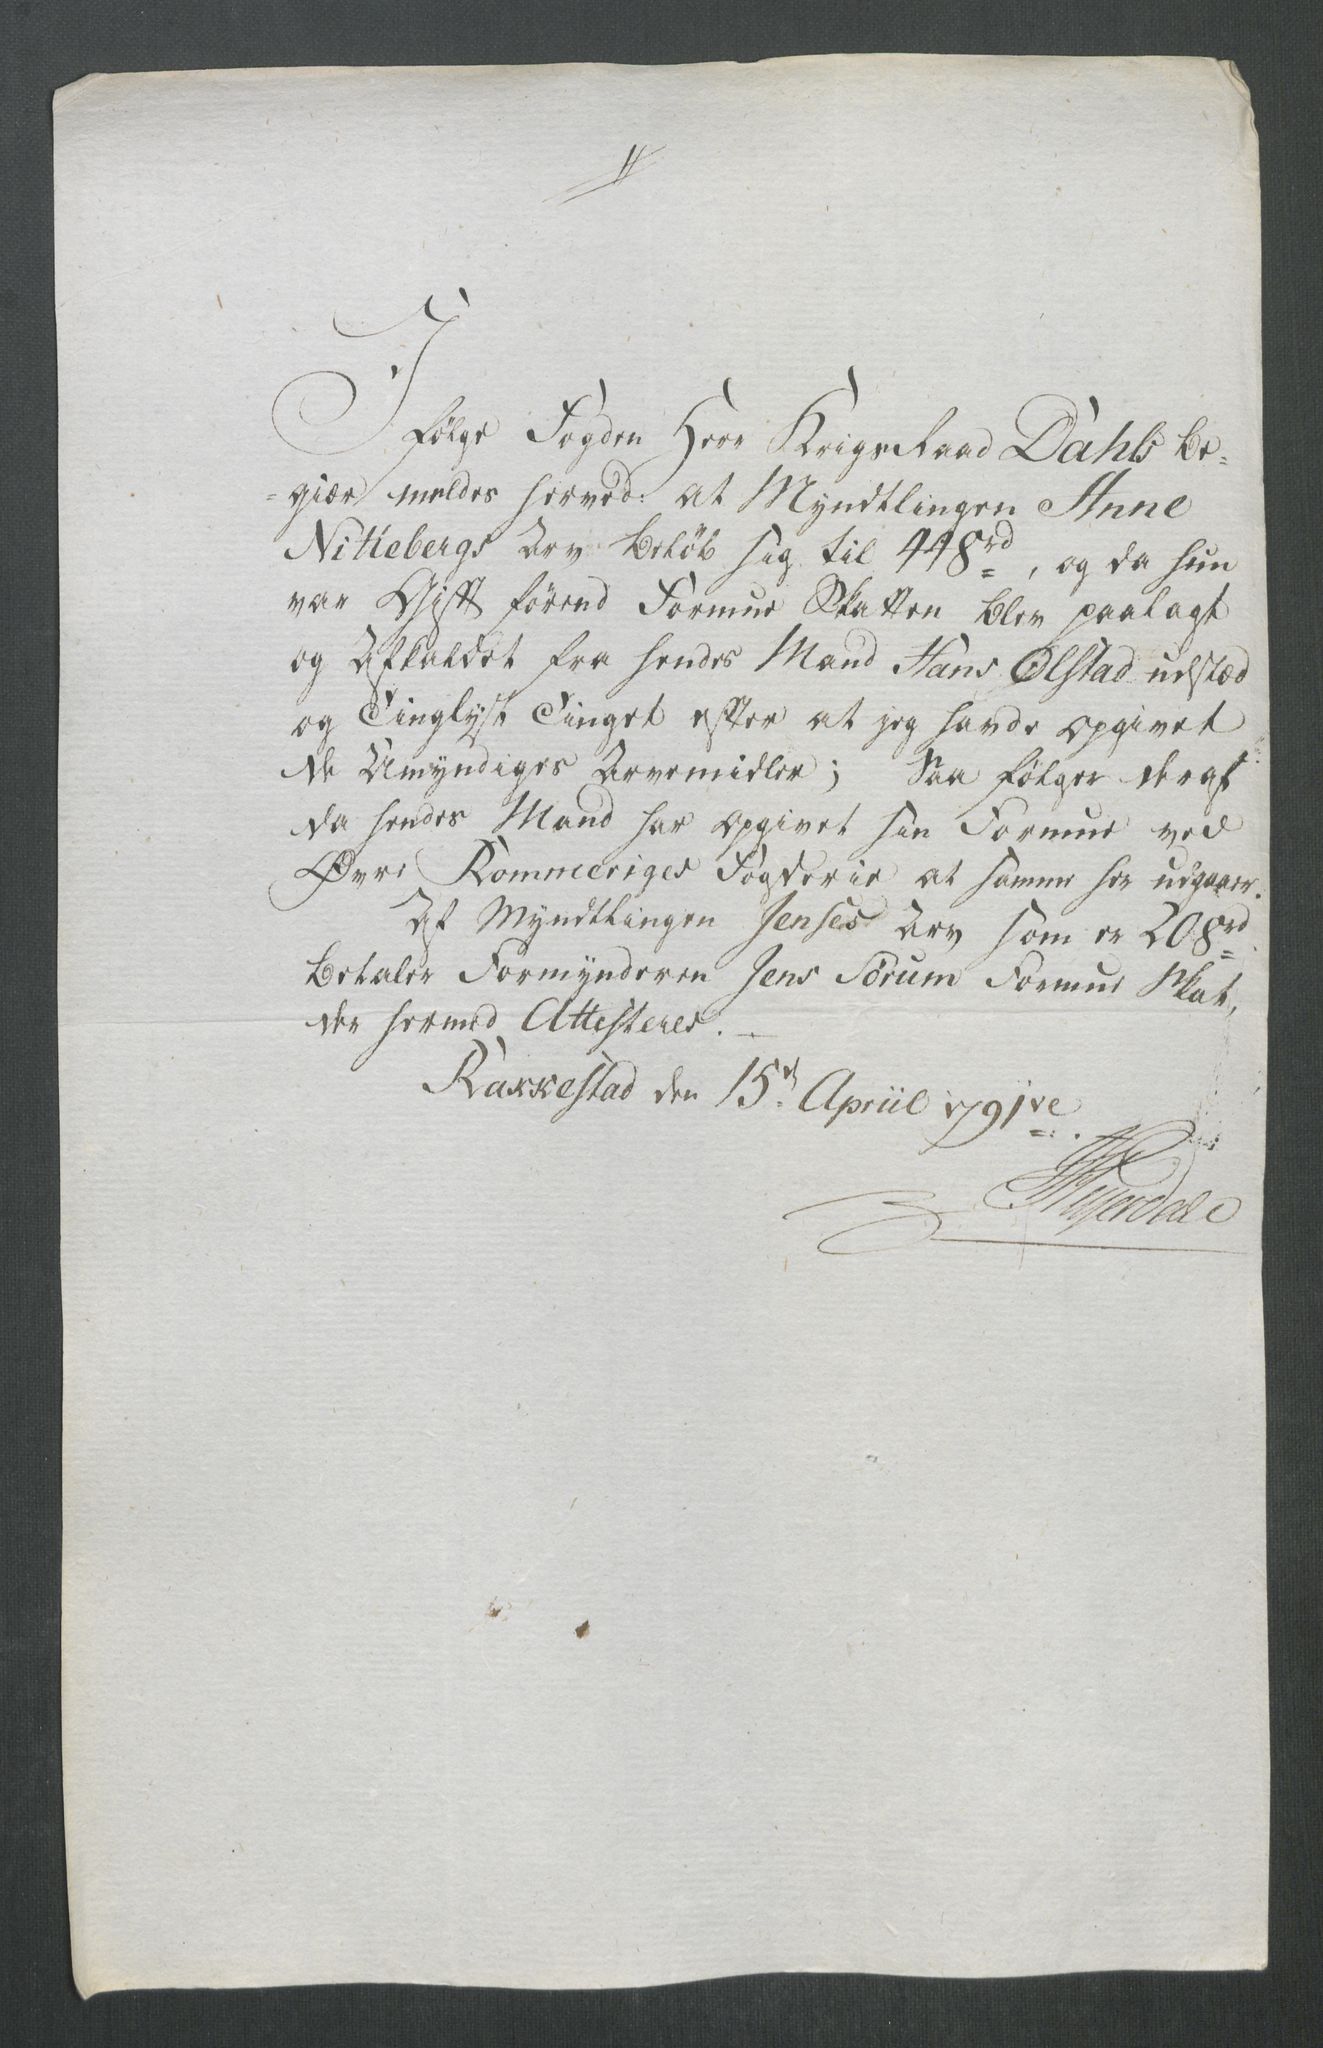 I
følge Fogden Herr Krigs Raad Dahls be-
-giær meldes herved: at Myndtlingen Anne
Nittebergs Arv beløb sig til 448rd, og da hun
var Gift førend Formue Skatten blev paalagt
og Afkaldet fra hendes Mand Hans Ølstad udstæd
og Tinglyst Tinget efter at jeg havde opgivet
de Umyndiges Arvemidler; Saa følger deraf
da hendes Mand har opgivet sin Formue ved
Øvre Rommeriges Fogderie at samme her udgaaer.
Af Myndtlingen Jenses Arv som er 208rd
betaler Formynderen Jens Sørum Formue Skat,
der hermed Attesteres.
Rakkestad den 15d Apriil 1791ve.